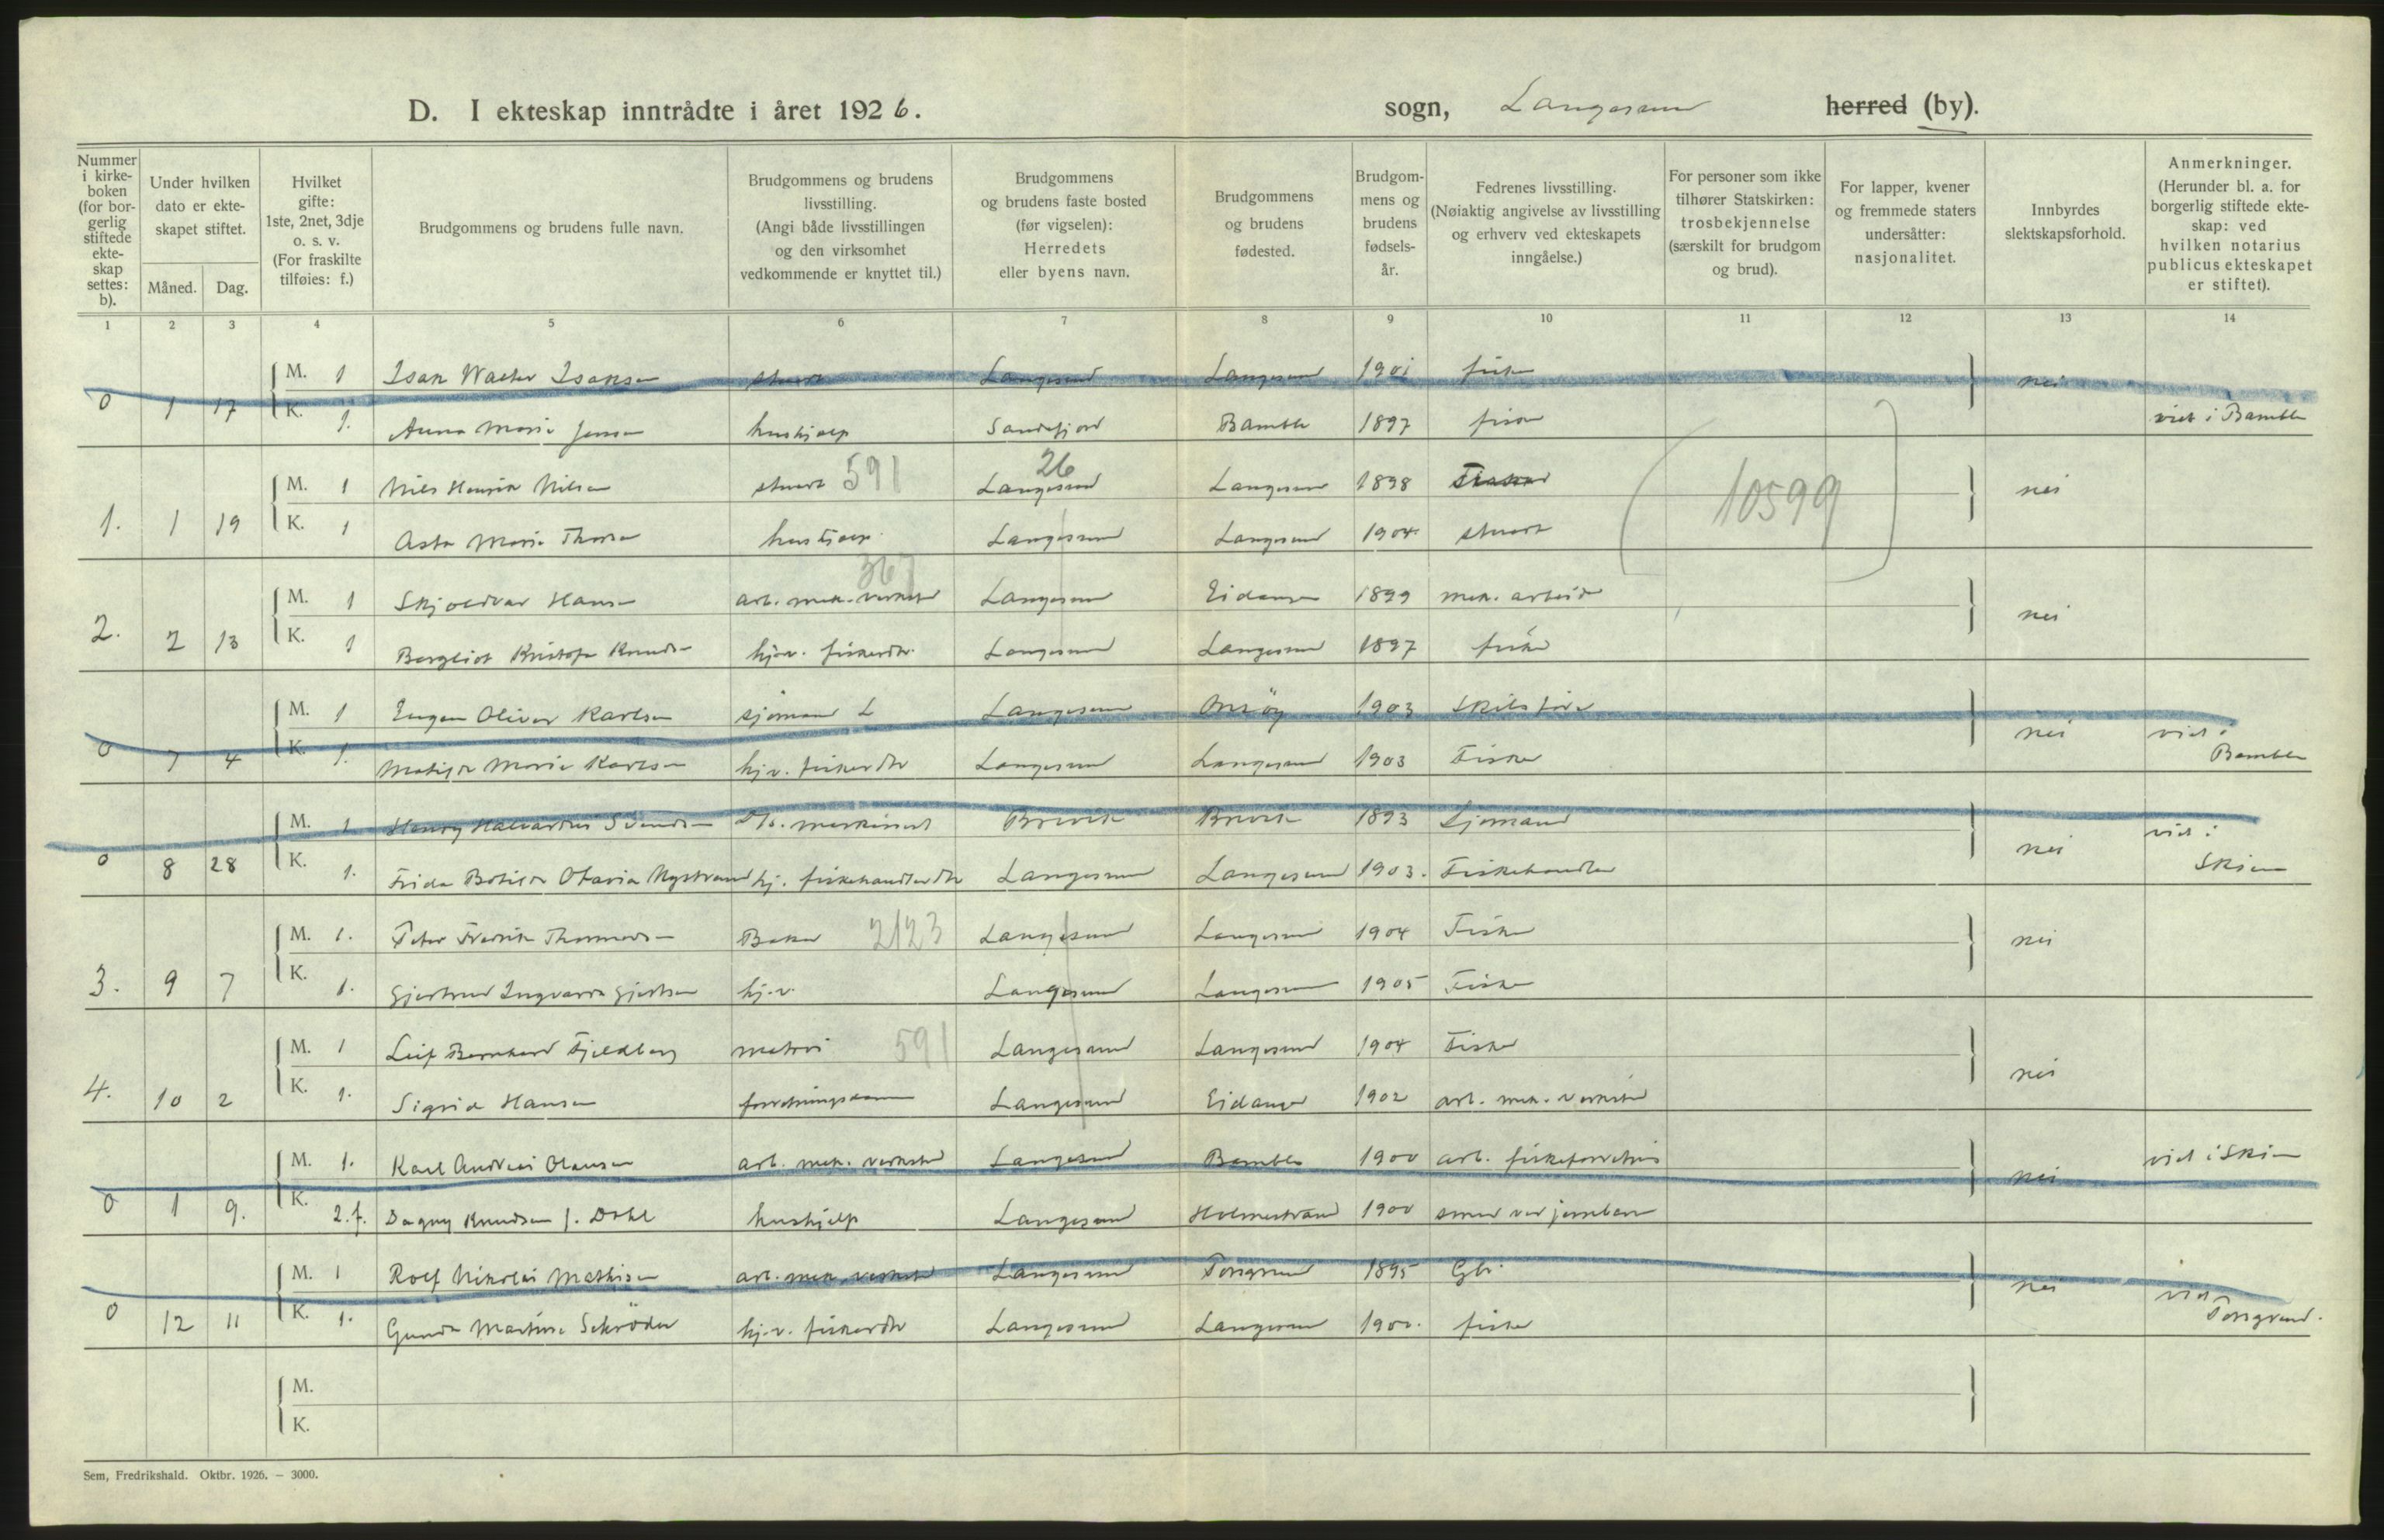 D. I ekteskap inntrådte i året 1926. sogn, Langesund herred (by).
Nummer i kirkeboken (for borgerlig stiftede ekteskap settes: b).
Under hvilken dato er ekteskapet stiftet.
Måned. Dag.
Hvilket gifte: 1ste, 2net, 3dje o. s. v. (For fraskilte tilføies: f.)
Brudgommens og brudens fulle navn.
Brudgommens og brudens livsstilling. (Angi både livsstillingen og den virksomhet vedkommende er knyttet til.)
Brudgommens og brudens faste bosted (før vigselen): Herredets eller byens navn.
Brudgommens og brudens fødested.
Brudgommens og brudens fødselsår.
Fedrenes livsstilling. (Nøiaktig angivelse av livsstilling og erhverv ved ekteskapets inngåelse.)
For personer som ikke tilhører Statskirken: trosbekjennelse (særskilt for brudgom og brud).
For lapper, kvener og fremmede staters undersåtter: nasjonalitet.
Innbyrdes slektskapsforhold.
Anmerkninger. (Herunder bl. a. for borgerlig stiftede ekteskap: ved hvilken notarius publicus ekteskapet er stiftet).
1 2 3 4 5 6 7 8 9 10 11 12 13 14
M. 1 Isak Walter Isaksen stuert Langesund Langesund 1901 fisker nei
0 1 17 K. 1. Anna Marie Jensen hushjelp Sandefjord Bamble 1897 fisker viet i Bamble
M. 1 Nils Henrik Nilsen stuert 591 26 Langesund Langesund 1898 Fisker 10599 nei
1. 1 19 K. 1 Asta Marie Thorsen hushjelp Langesund Langesund 1904 stuert
367
M. 1 Skjoldvar Hansen arb. mek. verksted Langesund Eidanger 1899 mek. arbeider nei
2. 2 13 K. 1 Bergliot Kristofa Knudsen hj.v. fiskerdtr. Langesund Langesund 1897 fisker
M. 1 Eugen Oliver Karlsen sjømann L Langesund Onsøy 1903 Skibsfører nei viet i
0 7 4 K. 1. Matilda Marie Karlsen hj.v. fiskerdtr Langesund Langesund 1903 Fisker Bamble
M. 1 Henry Halvardus Svendsen maskinist Brevik Brevik 1893 Sjømann nei viet i
0 8 28 K. 1. Frida Botilda Otavia Nystrand hj. fiskehandlerdtr Langesund Langesund 1903. Fiskehandler Skien
M. 1. Peter Fredrik Thommesen Baker 2123 Langesund Langesund 1904 Fisker nei
3. 9 7 K. 1. Gjertrud Ingvarda Gjertsen hj.v. Langesund Langesund 1905 Fisker
M. 1 Leif Bernhard Fjeldberg matros 591 Langesund Langesund 1904 Fisker nei
4. 10 2 K. 1. Sigrid Hansen forretningsdame Langesund Eidanger 1902 arb. mek. verksted
M. 1. Karl Andreas Olausen arb. mek. verksted Langesund Bamble 1900 arb. fiskeforretning nei viet i Skien
0 1 9. K. 2.f. Dagny Knudsen f. Dahl hushjelp Langesund Holmestrand 1900 smed ved jernbanen
M. 1 Rolf Nikolai Mathisen arb. mek. verksted Langesund Porsgrund 1895 Gbr. nei viet
0 12 11 K. 1. Gunda Martine Schröder hj.v. fiskerdtr Langesund Langesund 1900. fisker Porsgrund.
M.
K.
Sem, Fredrikshald. Oktbr. 1926. — 3000.